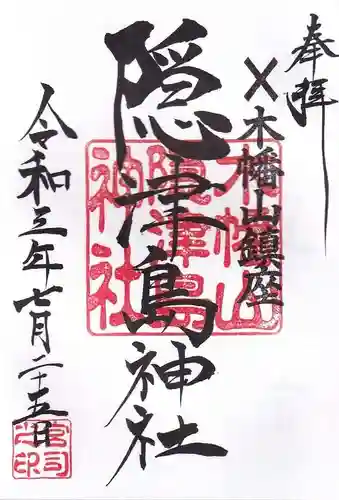 奉拝
×木幡山鎮座
隠津島神社
令和三年七月二十五日
木幡山
隠津島
神社
宮司
之印